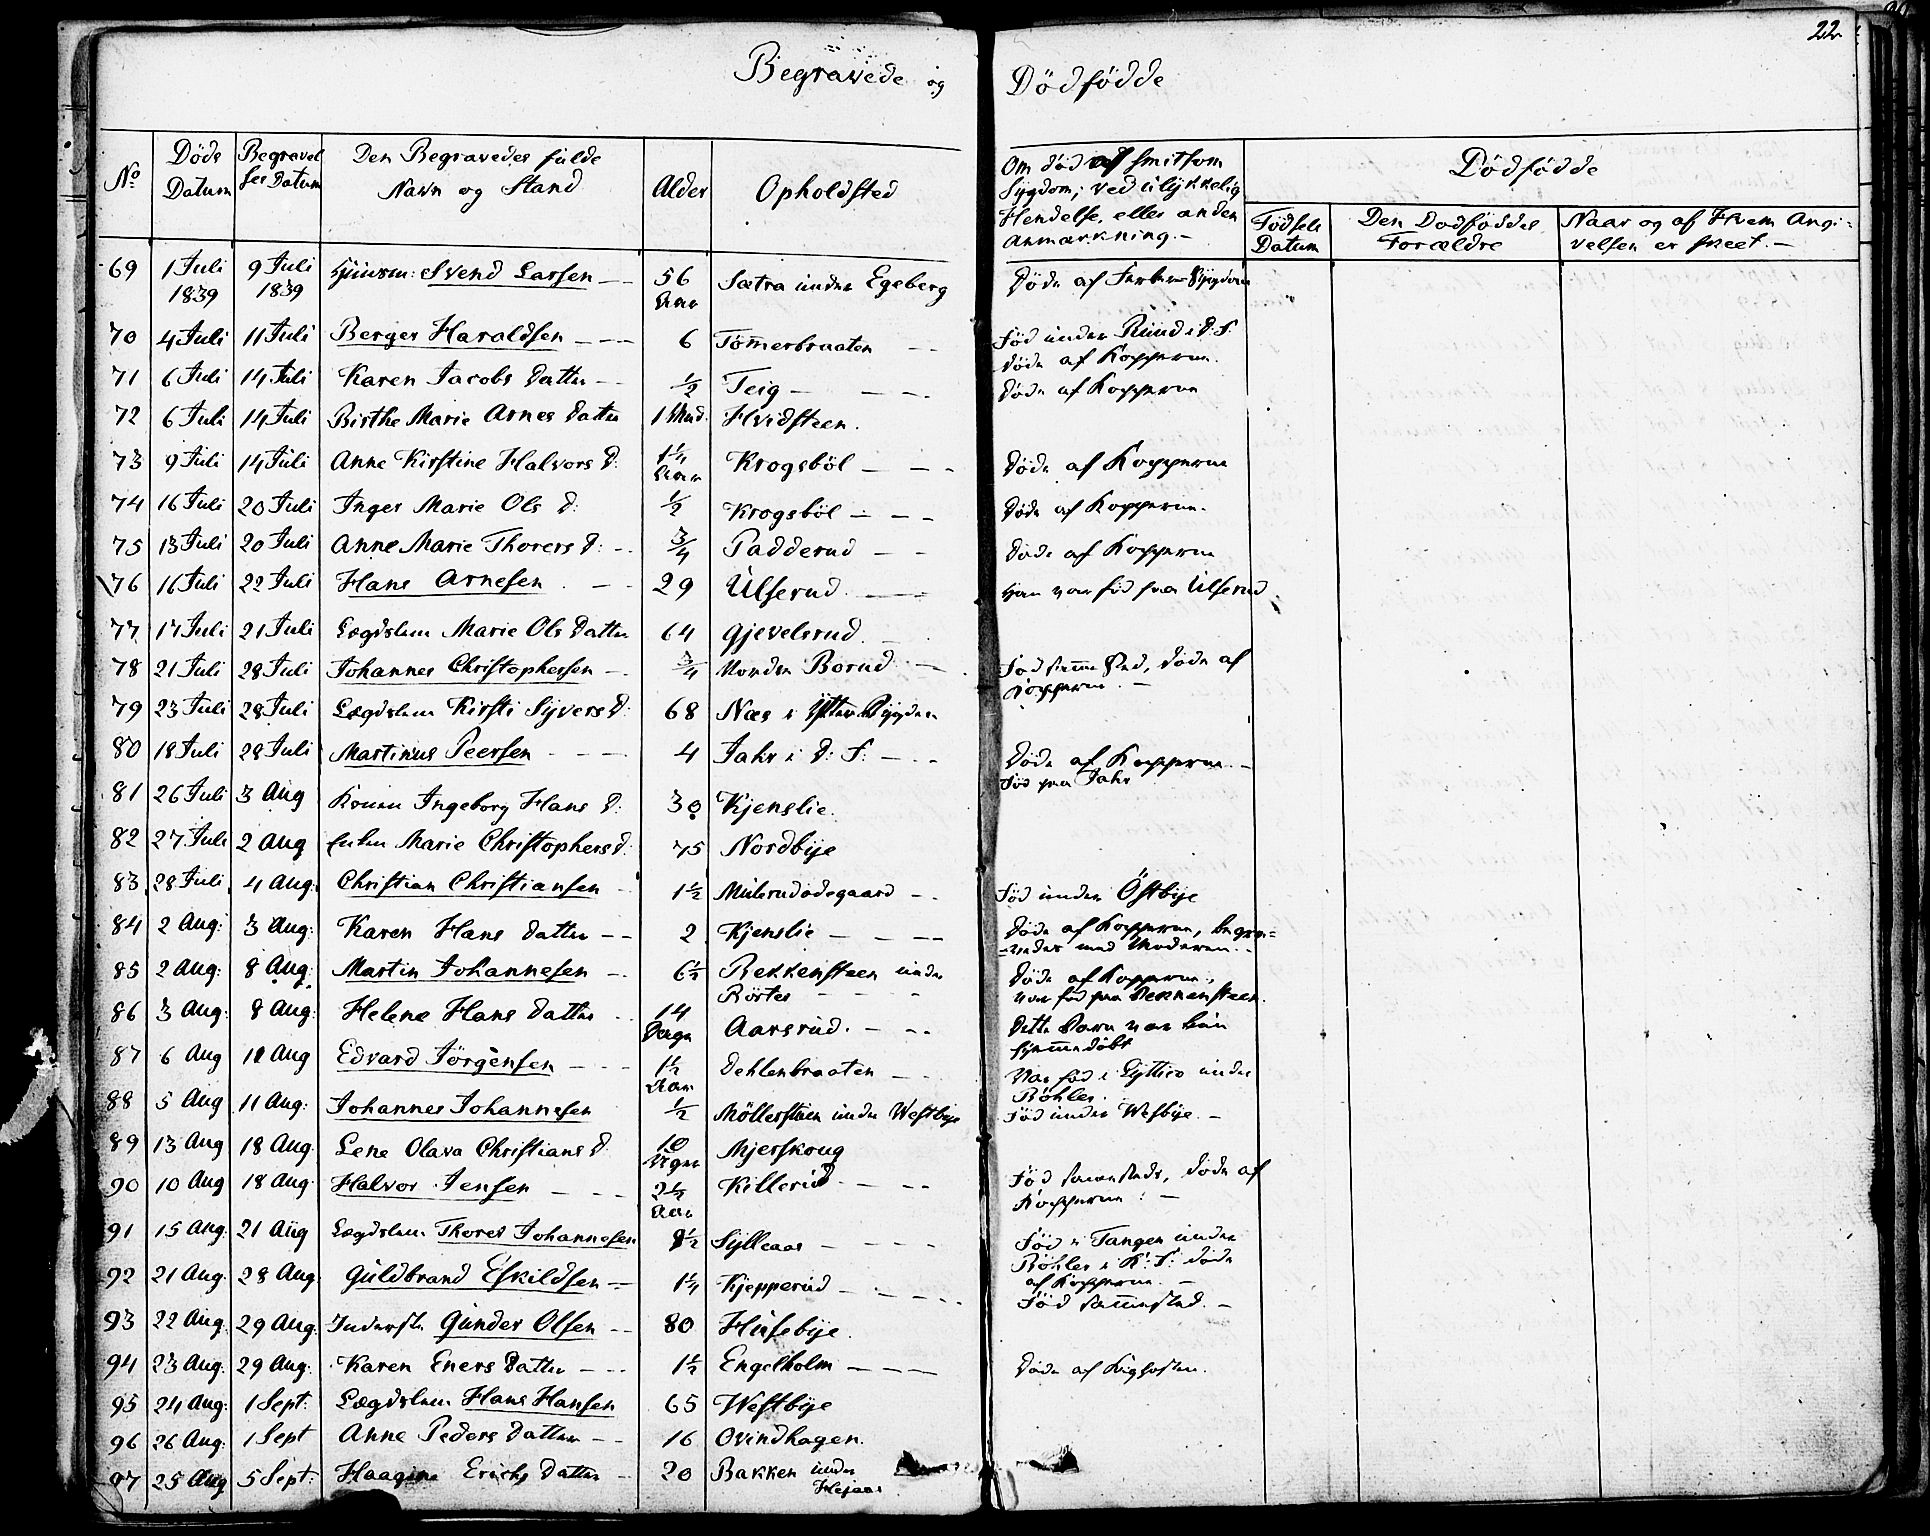 22
Begravede og Dödfödde
No
Döds Datum
Begravelses Datum
Den Begravedes fulde Navn og Stand
Alder
Opholdsted
Om död af smitsom Sygdom; ved ulykkelig Hendelse, eller anden Anmærkning.-
Dödfödde
Födsels Datum
Den Dodföddes Forældre
Naar og af Hvem Angivelsen er skeet.-
69 1 Juli 1839 9 Juli 1839 Huusm: Svend Larsen 56 Aar Sætra under Egeberg Döde af
70 4 Juli 11 Juli Berger Haraldsen 6 Tömerbraaten Föd under Ruud i D: F: döde af Kopperne.
71 6 Juli 14 Juli Karen Jacobs Datter ½ Teig Döde af Kopperne
72 6 Juli 14 Juli Birthe Marie Arnes Datter 1 Mnd. Hvidsteen.
73 9 Juli 14 Juli Anne Kirstine Halvors D: 1¼ Aar Krogsböl Döde af Kopperne
74 16 Juli 20 Juli Inger Marie Ols D: ½ Krogsböl Döde af Kopperne.
75 13 Juli 20 Juli Anne Marie Thorers D: ¾ Padderud Döde af Kopperne
76 16 Juli 22 Juli Hans Arnesen 29 Ulserud Han var föd paa Ulserud
77 17 Juli 21 Juli Lægdslem Marie Ols Datter 64 Gjevelsrud
78 21 Juli 28 Juli Johannes Christophersen ¾ Nordre Borud Föd samme Sted, döde af Kopperne.
79 23 Juli 28 Juli Lægdslem Kirsti Syvers D: 68 Næs i Ytter Bygden
80 18 Juli 28 Juli Martinus Peersen 4 Jahr i D: F: Döde af Kopperne. Föd paa Jahr
81 26 Juli 3 Aug Konen Ingeborg Hans D: 30 Kjenslie.
82 27 Juli 2 Aug Enken Marie Christophers D: 75 Nordbye
83 28 Juli 4 Aug: Christian Christiansen 1½ Mulerudødegaard Föd under Östbye
84 2 Aug: 3 Aug: Karen Hans Datter 2 Kjenslie Döde af Kopperne, begravedes med Moderen.
85 2 Aug: 8 Aug: Martin Johannesen 6½ Bekkensteen under Börter Döde af Kopperne, var föd paa Bekkensteen.
86 3 Aug: 8 Aug: Helene Hans Datter 14 Dage Aarsrud. Dette Barn var kun hjemmedöbt
87 6 Aug 11 Aug Edvard Jörgensen 1½ Aar Dehlenbraaten Var föd i under Böhler.
88 5 Aug 11 Aug: Johannes Johannesen ½ Möllersteen under Westbye Föd under Wesbye.
89 13 Aug 18 Aug: Lene Olava Christians D: 10 Uger Mjerskoug
90 10 Aug 18 Aug: Halvor Jensen 2½ Aar Killerud Föd sammesteds, döde af Kopperne.
91 15 Aug: 21 Aug Lægdslem Thorer Johannesen 8½ Sylleaas Föd i Tangen under Böhler i K: F: döde af Kopperne.
92 21 Aug: 28 Aug: Guldbrand Eskildsen 1¼ Kjepperud Föd sammested.
93 22 Aug: 29 Aug: Inderste Gunder Olsen 80 Husebye.
94 23 Aug: 29 Aug: Karen Eners Datter 1½ Engelholm Döde af Kighosten.
95 24 Aug: 1 Sept: Lægdslem Hans Hansen 65 Westbye
96 26 Aug: 1 Sept Anne Peders Datter 16 Ovindhagen.
97 25 Aug 5 Sept: Haagine Erichs Datter 20 Bakken under